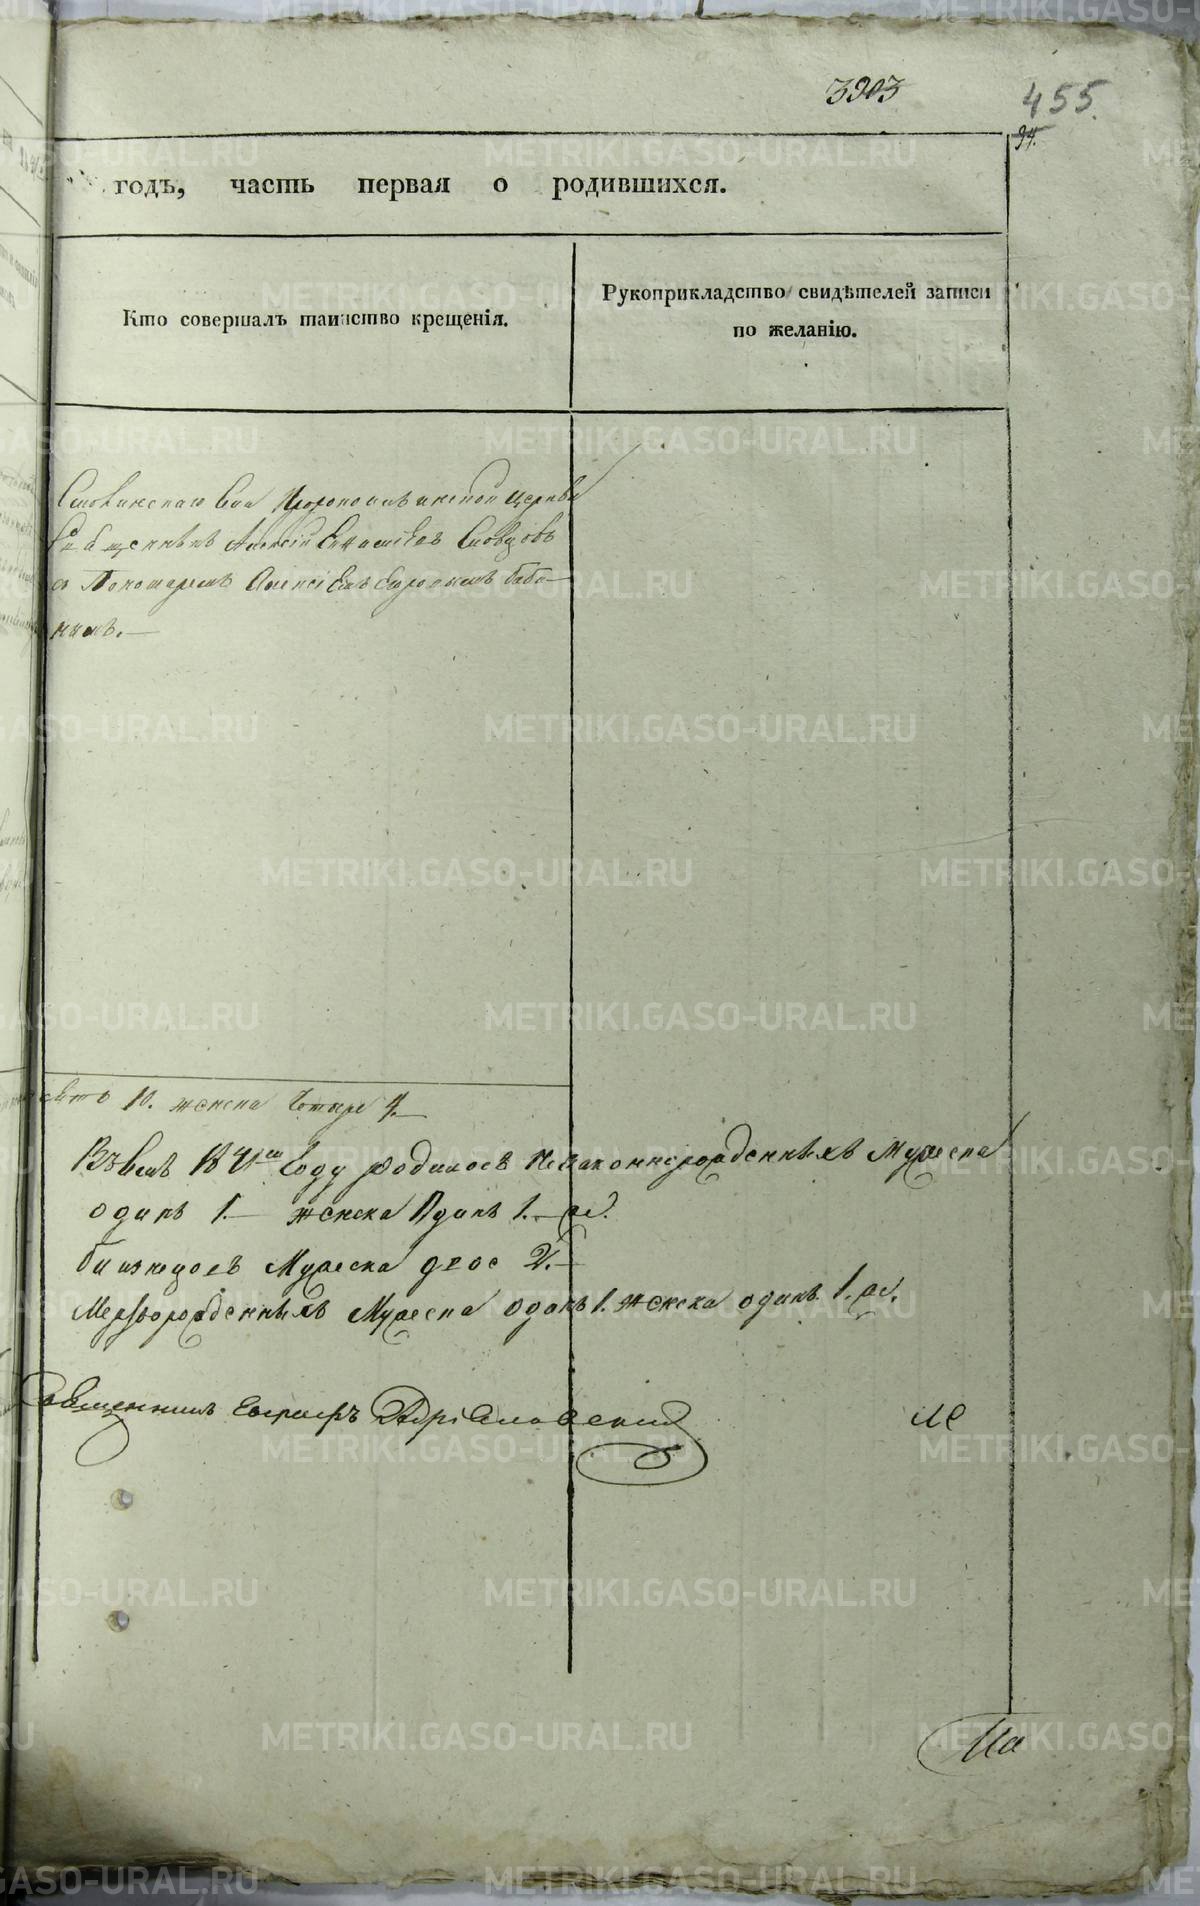 3903
455.
94.
годъ, часть первая о родившихся.
Кто совершалъ таинство крещенія.
Рукоприкладство свидѣтелей записи
по желанію.
Села Пророкоильинской Церкви
Священникъ Алексій Словцовъ
съ Пономаремъ Алексіемъ Баба-
нымъ.—
10. женска четыре 4.—
Въ семъ 1841мъ Году родилось Незаконнорожденныхъ Мужеска
одинъ 1.— женска Одинъ 1.—
близнецовъ Мужеска двое 2.—
Мертворожденныхъ Мужеска одинъ 1. женска одинъ 1.
Священникъ Евграфъ Адріановскій
METRIKI.GASO-URAL.RU